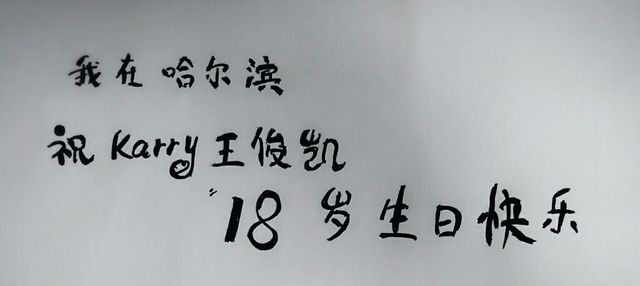 我在哈尔滨
祝Karry王俊凯
18岁生日快乐